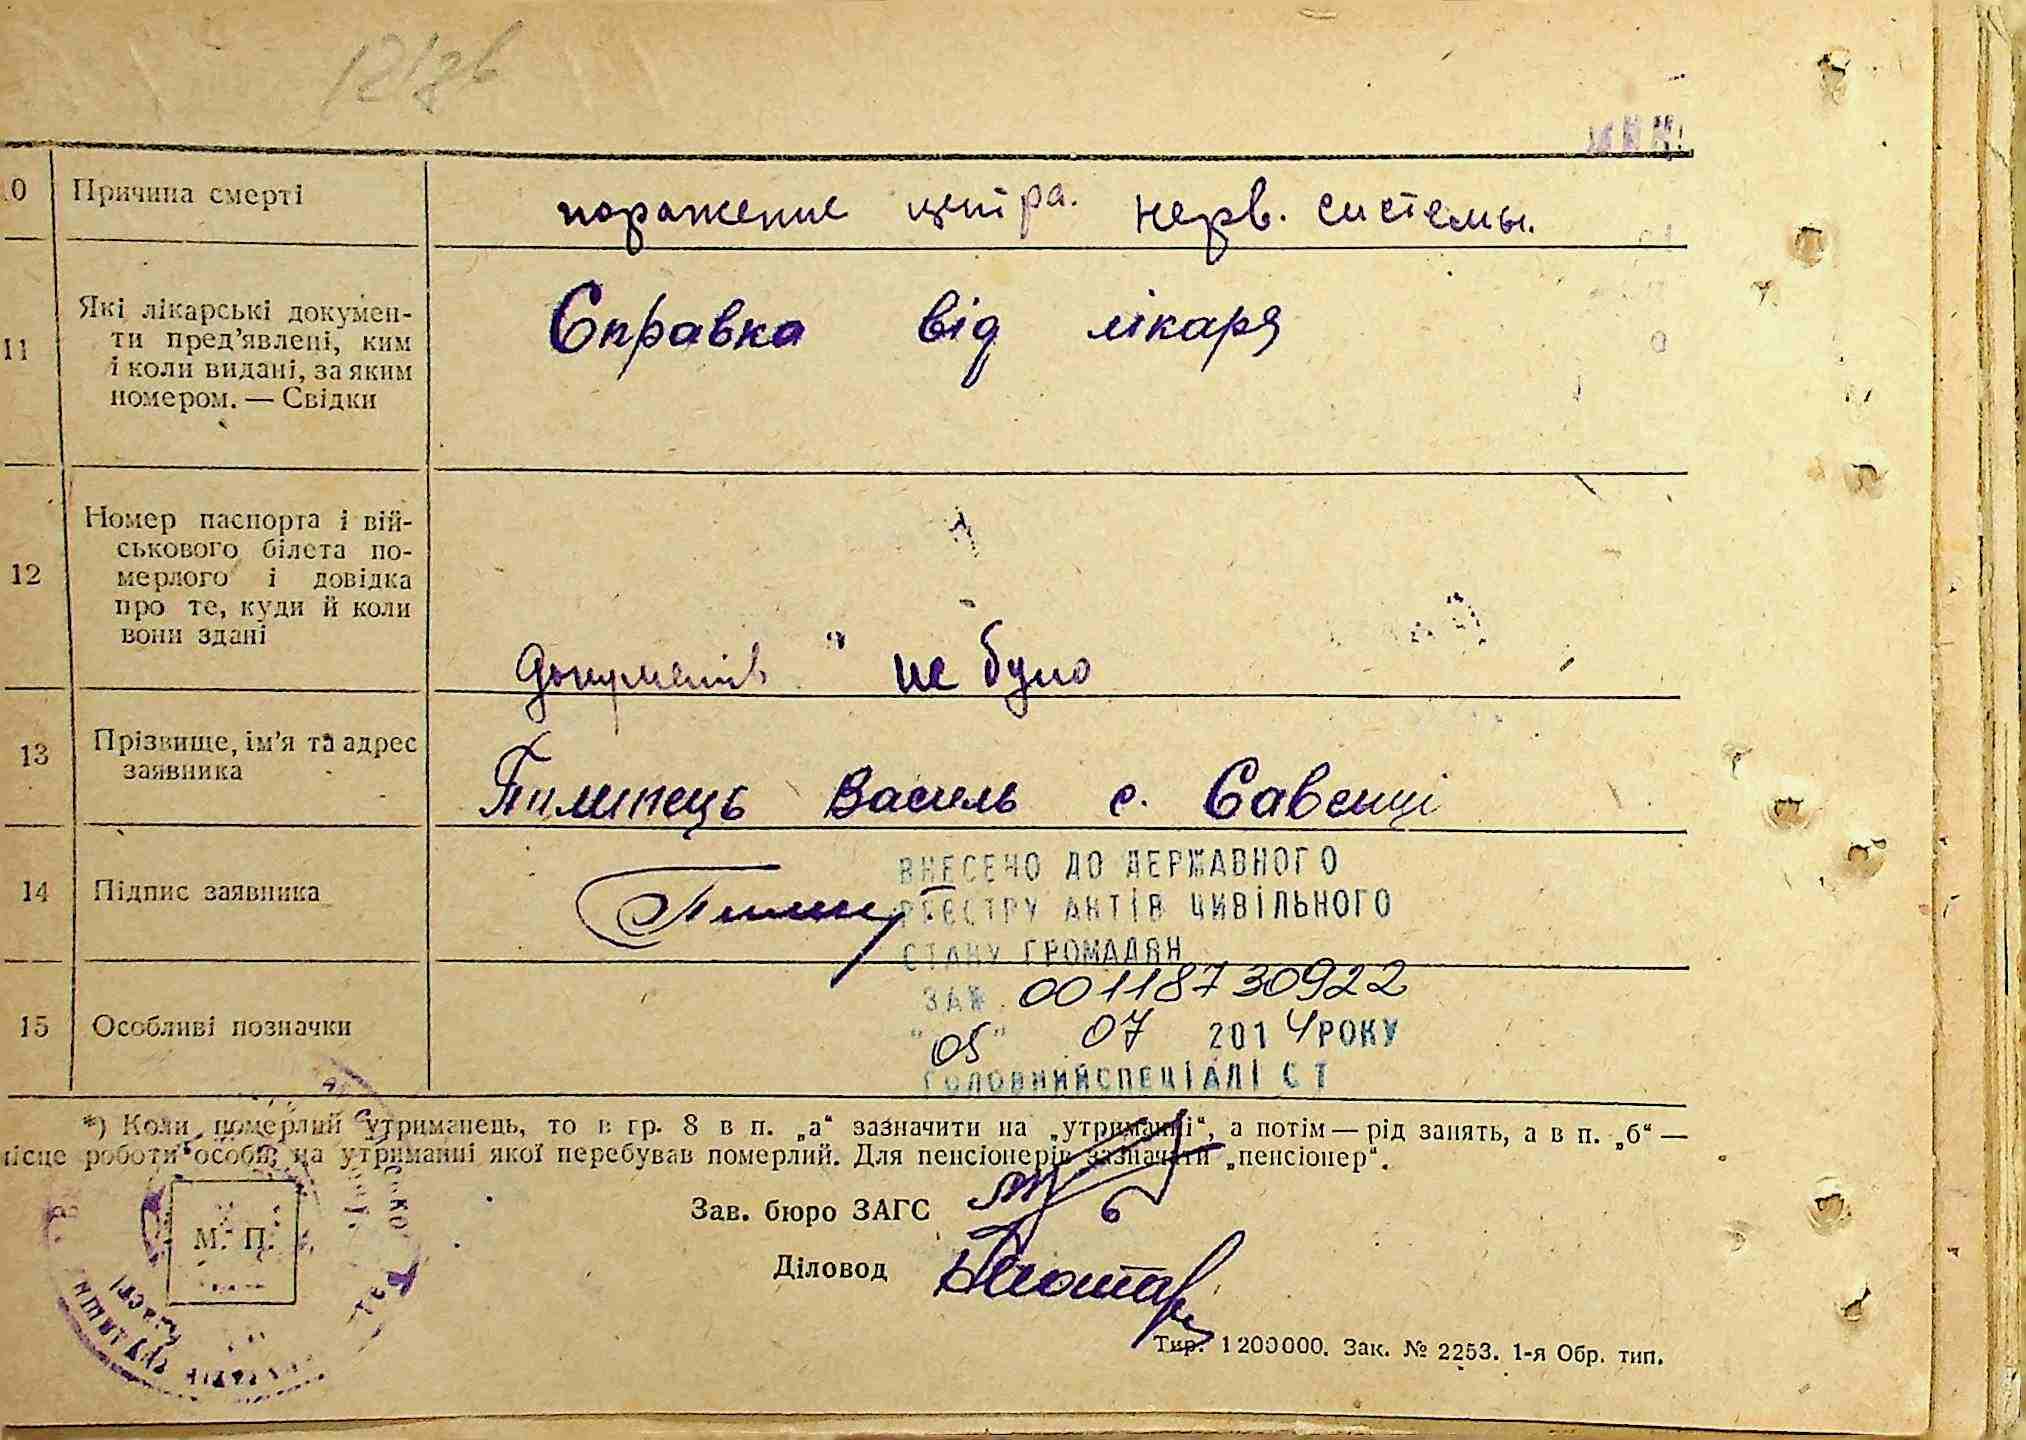 10 Причина смерті
поражение центра. нерв. системы.
11 Які лікарські докумен-
ти пред’явлені, ким
і коли видані, за яким
номером. — Свідки
Справка від лікаря
12 Номер паспорта і вій-
ськового білета по-
мерлого і довідка
про те, куди й коли
вони здані
Документів не було
13 Прізвище, ім’я та адрес
заявника
Пилипець Василь с. Савенці
14 Підпис заявника
ВНЕСЕНО ДО ДЕРЖАВНОГО
РЕЄСТРУ АКТІВ ЦИВІЛЬНОГО
СТАНУ ГРОМАДЯН
ЗА № 00118730922
15 Особливі позначки
"05" 07 2014 РОКУ
ГОЛОВНИЙ СПЕЦІАЛІСТ
*) Коли померлий утриманець, то в гр. 8 в п. „а“ зазначити на „утриманні“, а потім — рід занять, а в п. „б“ —
місце роботи особи, на утриманні якої перебував померлий. Для пенсіонерів зазначати „пенсіонер“.
Зав. бюро ЗАГС
М. П.
Діловод
Тир. 1200000. Зак. № 2253. 1-я Обр. тип.